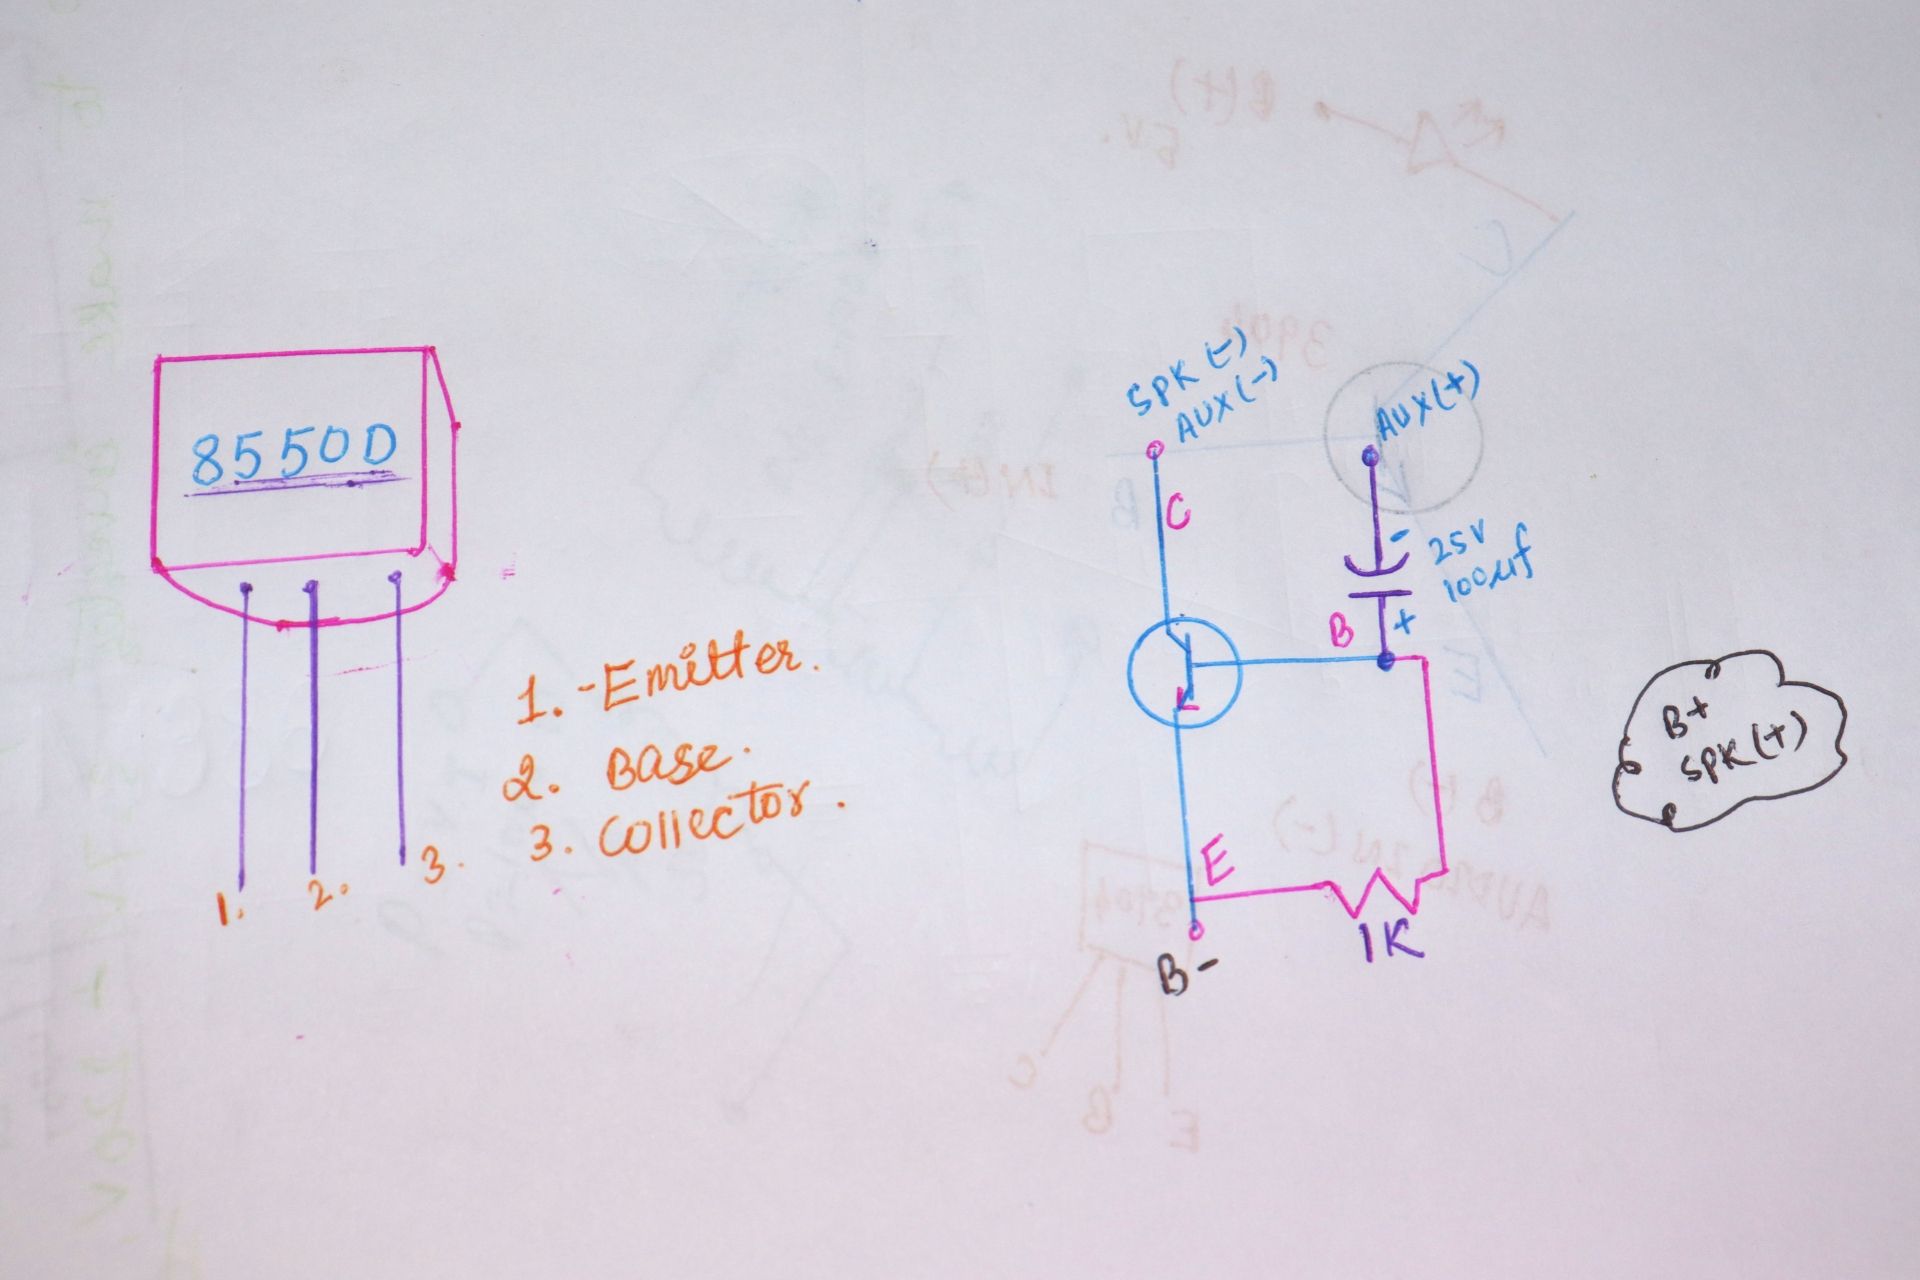 8550D
1.
2.
3.
1. -Emitter.
2. Base.
3. Collector.
SPK (-)
AUX (-)
AUX (+)
C
-
25V
100µf
B
+
E
1K
B-
B+
SPK (+)